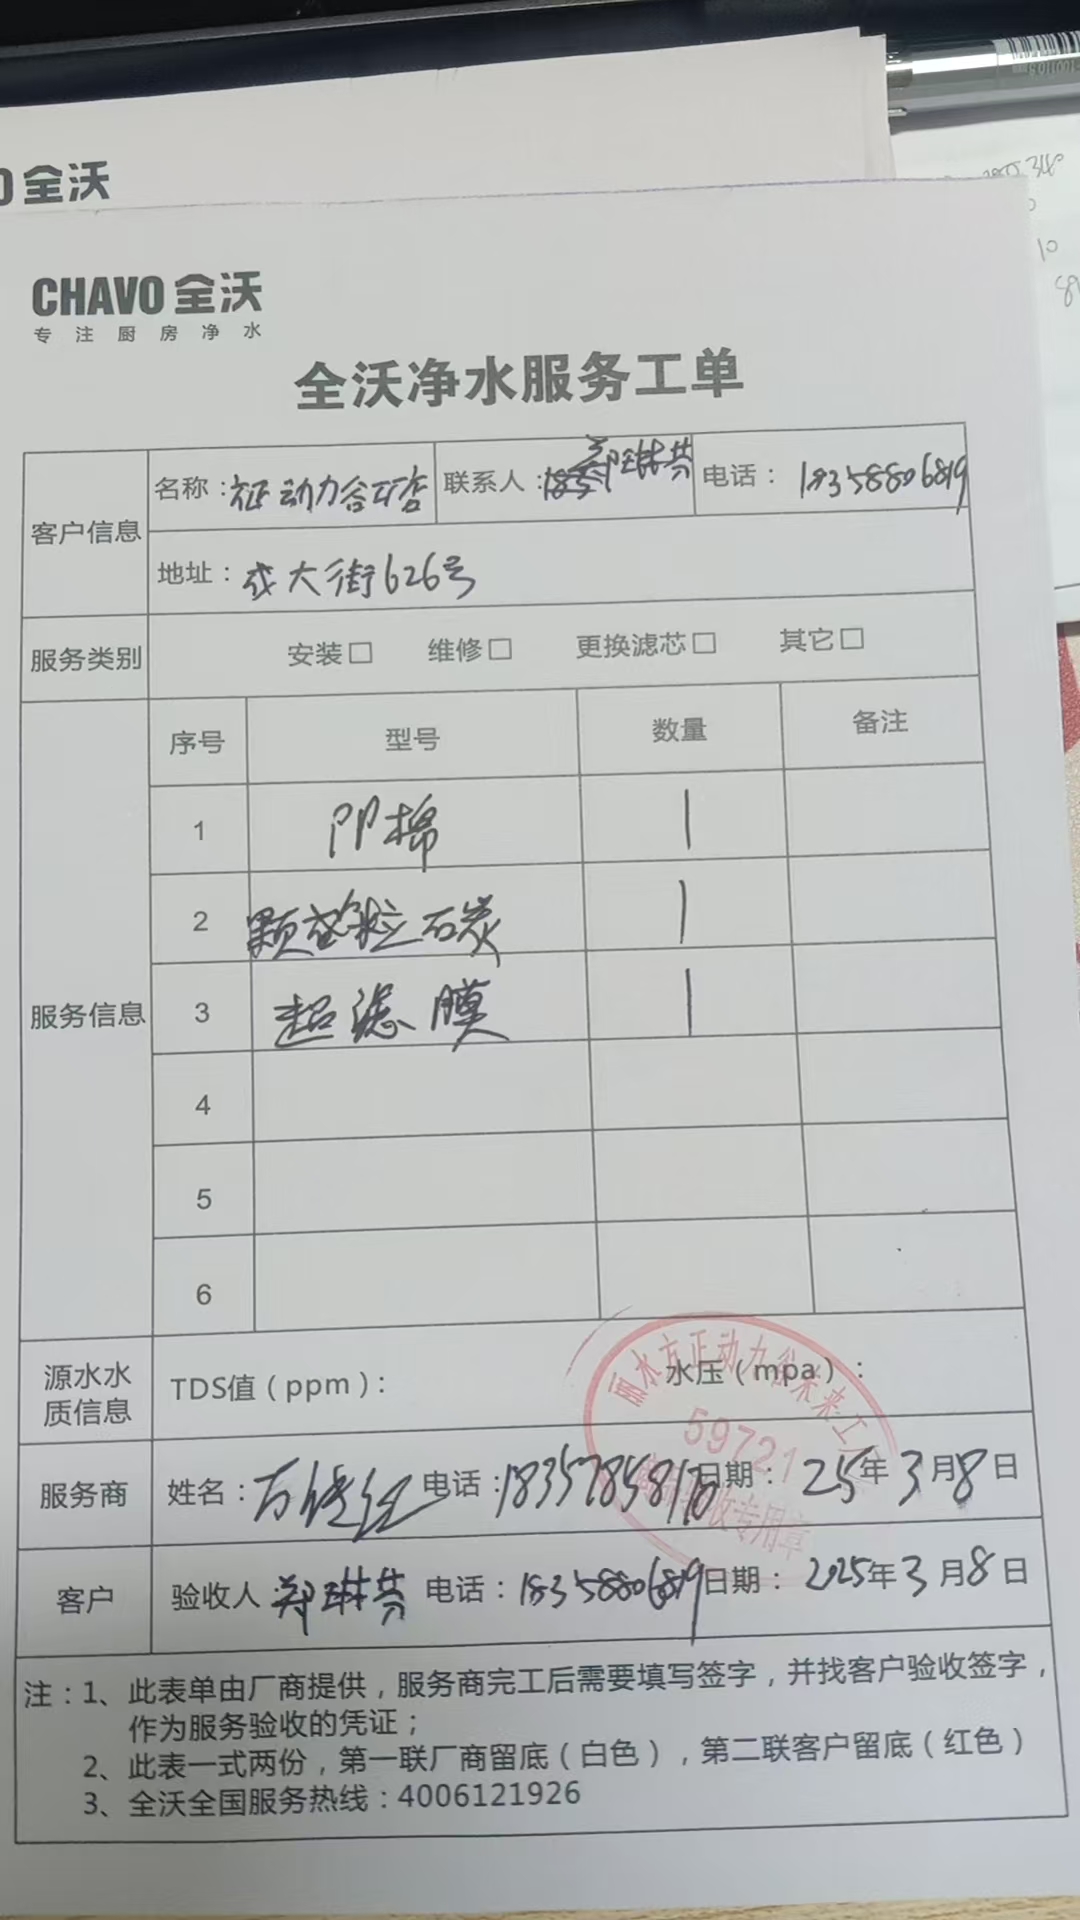 全沃
CHAVO 全沃
专注厨房净水
全沃净水服务工单
客户信息 名称： 动力谷 联系人：郑琳芬 电话：18358806819
地址： 大街626号
服务类别 安装□ 维修□ 更换滤芯□ 其它□
服务信息 序号 型号 数量 备注
1 PP棉 1
2 颗 粒 炭 1
3 超滤膜 1
4
5
6
源水水质信息 TDS值（ppm）： 水压（mpa）：
丽水方正动力谷未来工
59721
验收专用章
服务商 姓名：方 红 电话： 日期：25年3月8日
客户 验收人 郑琳芬 电话：18358806819 日期：2025年3月8日
注：1、此表单由厂商提供，服务商完工后需要填写签字，并找客户验收签字，
作为服务验收的凭证；
2、此表一式两份，第一联厂商留底（白色），第二联客户留底（红色）
3、全沃全国服务热线：4006121926